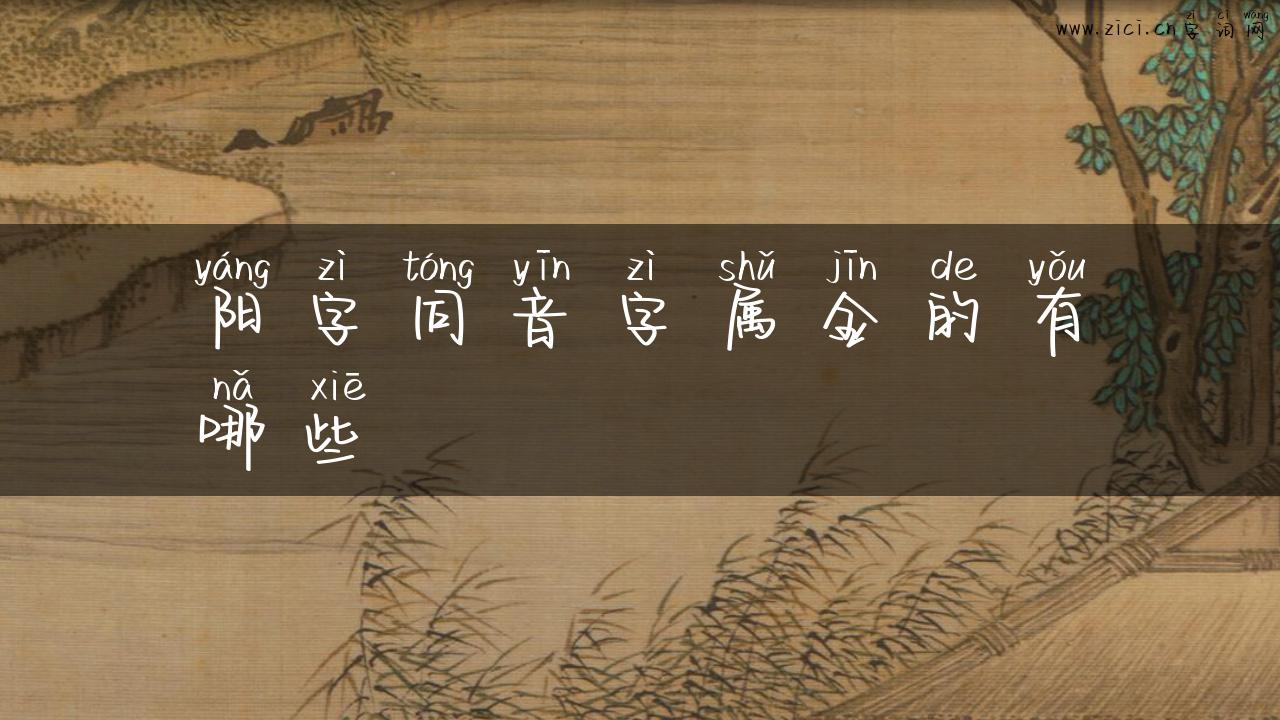 zì cí wǎng
www.zici.cn 字词网
yáng zì tóng yīn zì shǔ jīn de yǒu
阳字同音字属金的有
nǎ xiē
哪些